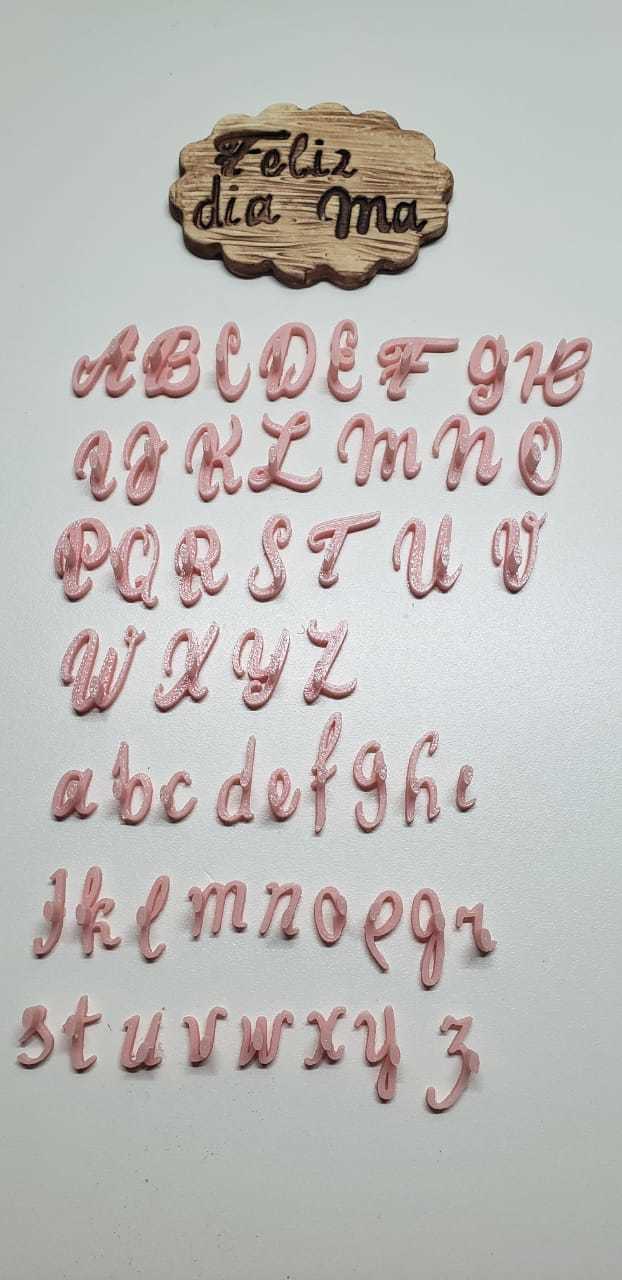 Feliz
dia Ma
A B C D E F G H
I J K L M N O
P Q R S T U V
W X Y Z
a b c d e f g h i
j k l m n o p q r
s t u v w x y z